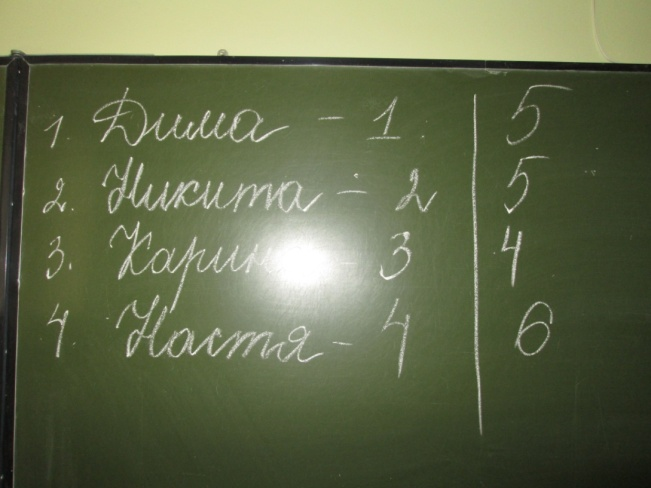 1. Дима - 1. 5
2. Никита - 2 5
3. Карина - 3 4
4. Настя - 4 6